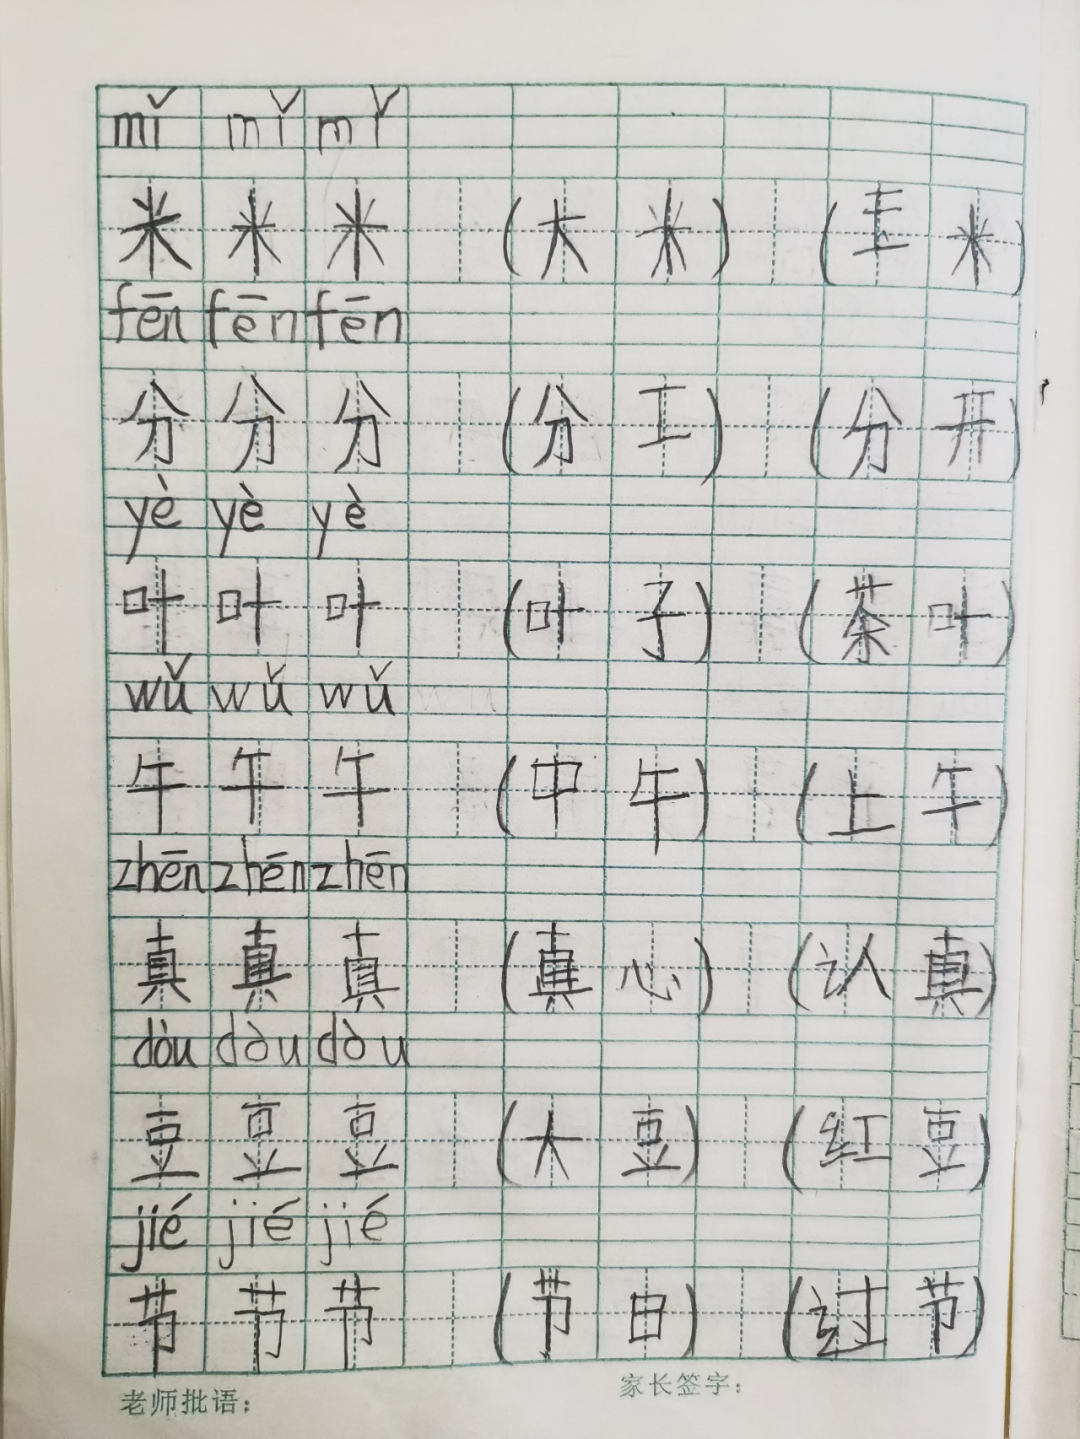 mǐ mǐ mǐ
米 米 米 (大 米) ( 米)
fēn fēn fēn
分 分 分 (分 工) (分 开)
yè yè yè
叶 叶 叶 (叶 子) (茶 叶)
wǔ wǔ wǔ
午 午 午 (中 午) (上 午)
zhēn zhēn zhēn
真 真 真 (真 心) (认 真)
dòu dòu dòu
豆 豆 豆 (大 豆) (红 豆)
jié jié jié
节 节 节 (节 日) ( 节)
老师批语： 家长签字：